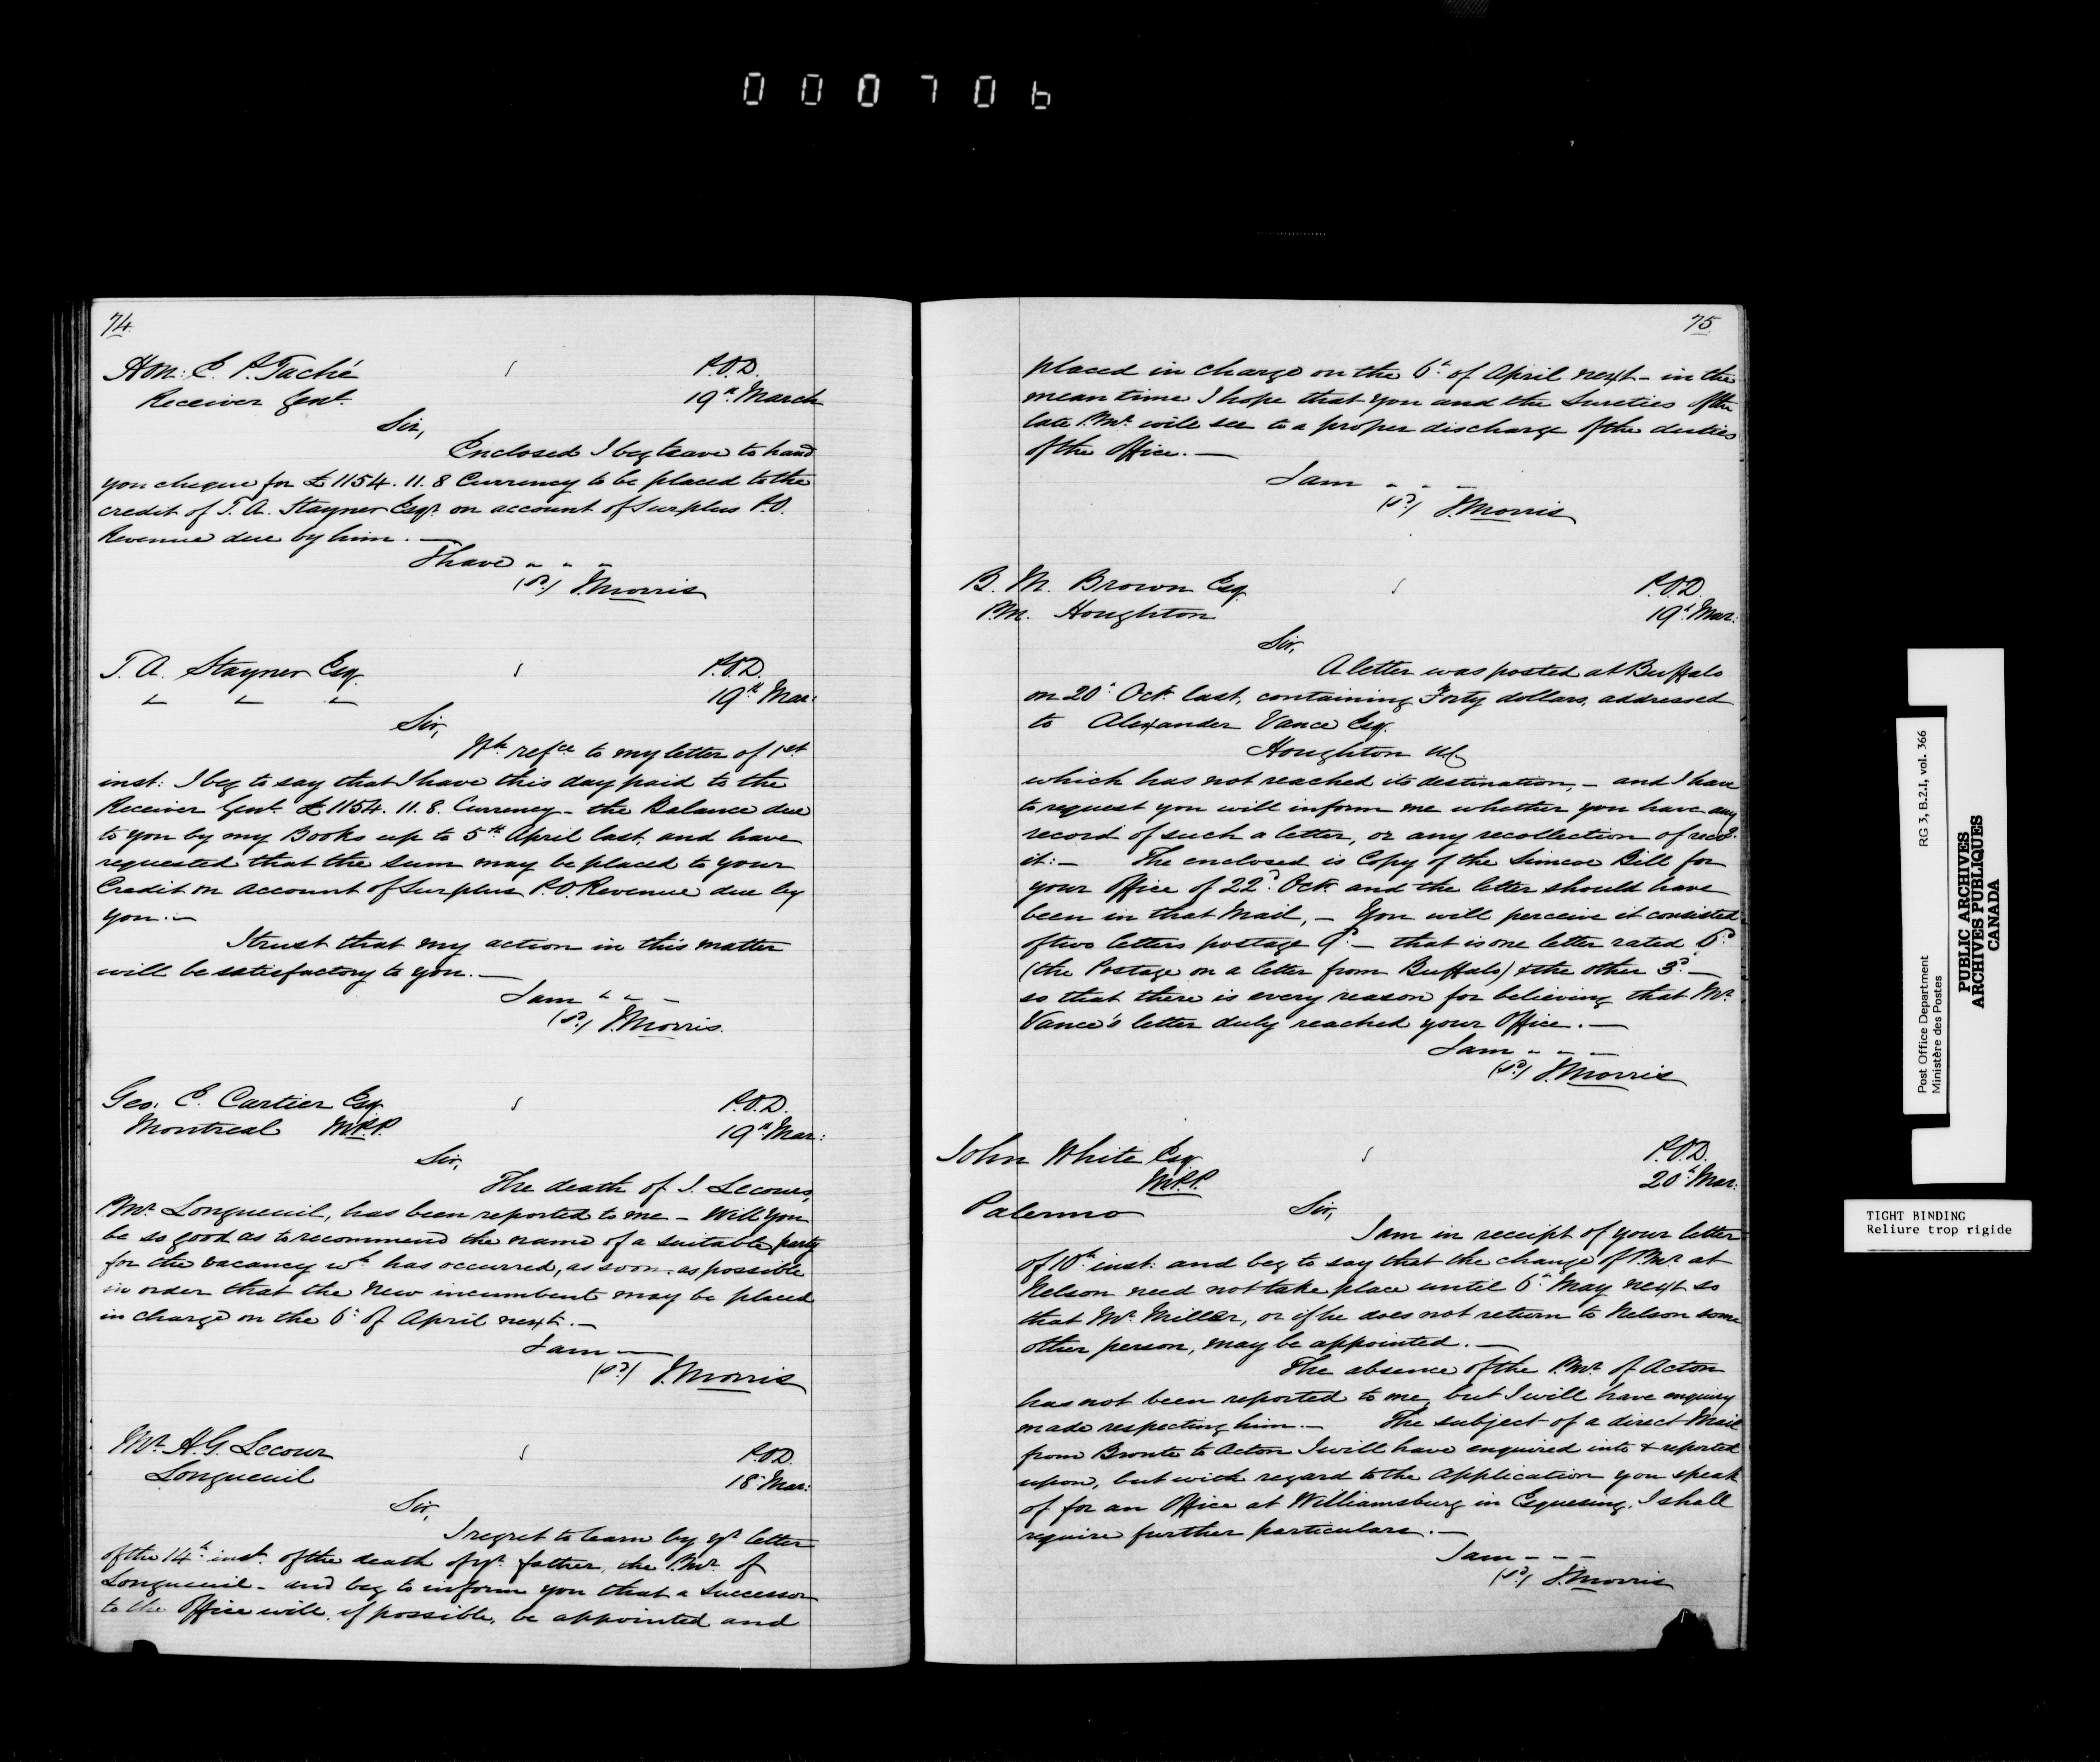 000706
74
Hon: E. P. Taché
P.O.D.
Receiver Genl.
19th March
Sir,
Enclosed I beg leave to hand
you cheque for £1154.11.8 Currency to be placed to the
credit of T. A. Stayner Esqr. on account of Surplus P.O.
Revenue due by him. —
I have - - -
(sd) J. Morris
T. A. Stayner Esq.
P.O.D.
" " "
19th Mar:
Sir,
Wth refce to my letter of 1st
inst: I beg to say that I have this day paid to the
Receiver Genl. £1154.11.8. Currency - the Balance due
to you by my Books up to 5th April last, and have
requested that the sum may be placed to your
Credit on account of Surplus P.O. Revenue due by
you. —
I trust that my action in this matter
will be satisfactory to you. —
I am " " -
(sd) J. Morris.
Geo. E. Cartier Esq.
P.O.D.
Montreal M.P.P.
19th Mar:
Sir,
The death of J. Lecours,
P.Mr. Longueuil, has been reported to me - Will you
be so good as to recommend the name of a suitable party
for the vacancy wh. has occurred, as soon as possible
in order that the new incumbent may be placed
in charge on the 6th of April next. —
I am —
(sd) J. Morris
Mr. H. G. Lecour
P.O.D.
Longueuil
18th Mar:
Sir,
I regret to learn by yr. letter
of the 14th inst. of the death of yr. father, the P.Mr. of
Longueuil - and beg to inform you that a Successor
to the Office will, if possible, be appointed and
75
placed in charge on the 6th of April next - in the
mean time I hope that you and the Sureties of the
late P.Mr. will see to a proper discharge of the duties
of the Office. —
I am - - -
(sd) J. Morris
B. M. Brown Esq.
P.O.D.
P.M. Houghton
19th Mar:
Sir,
A letter was posted at Buffalo
on 20th Oct. last, containing Forty dollars, addressed
to Alexander Vance Esq.
Houghton UC
which has not reached its destination, - and I have
to request you will inform me whether you have any
record of such a letter, or any recollection of recg.
it: — The enclosed is Copy of the Simcoe Bill for
your Office of 22d. Oct. and the letter should have
been in that Mail, - You will perceive it consisted
of two letters postage 9d. - that is one letter rated 6d.
(the Postage on a letter from Buffalo) & the other 3d. —
so that there is every reason for believing that Mr.
Vance's letter duly reached your Office. —
I am - - -
(sd) J. Morris
John White Esq.
P.O.D.
M.P.P.
20th Mar:
Palermo
Sir,
I am in receipt of your letter
of 10th inst: and beg to say that the change of P.Mr. at
Nelson need not take place until 6th May next so
that Mr. Miller, or if he does not return to Nelson some
other person, may be appointed. —
The absence of the P.Mr. of Acton
has not been reported to me, but I will have enquiry
made respecting him. — The subject of a direct Mail
from Bronte to Acton I will have enquired into & reported
upon, but with regard to the Application you speak
of for an Office at Williamsburg in Esquesing, I shall
require further particulars. —
I am - - -
(sd) J. Morris
Post Office Department
Ministère des Postes
RG 3, B.2.I, vol. 366
PUBLIC ARCHIVES
ARCHIVES PUBLIQUES
CANADA
TIGHT BINDING
Reliure trop rigide